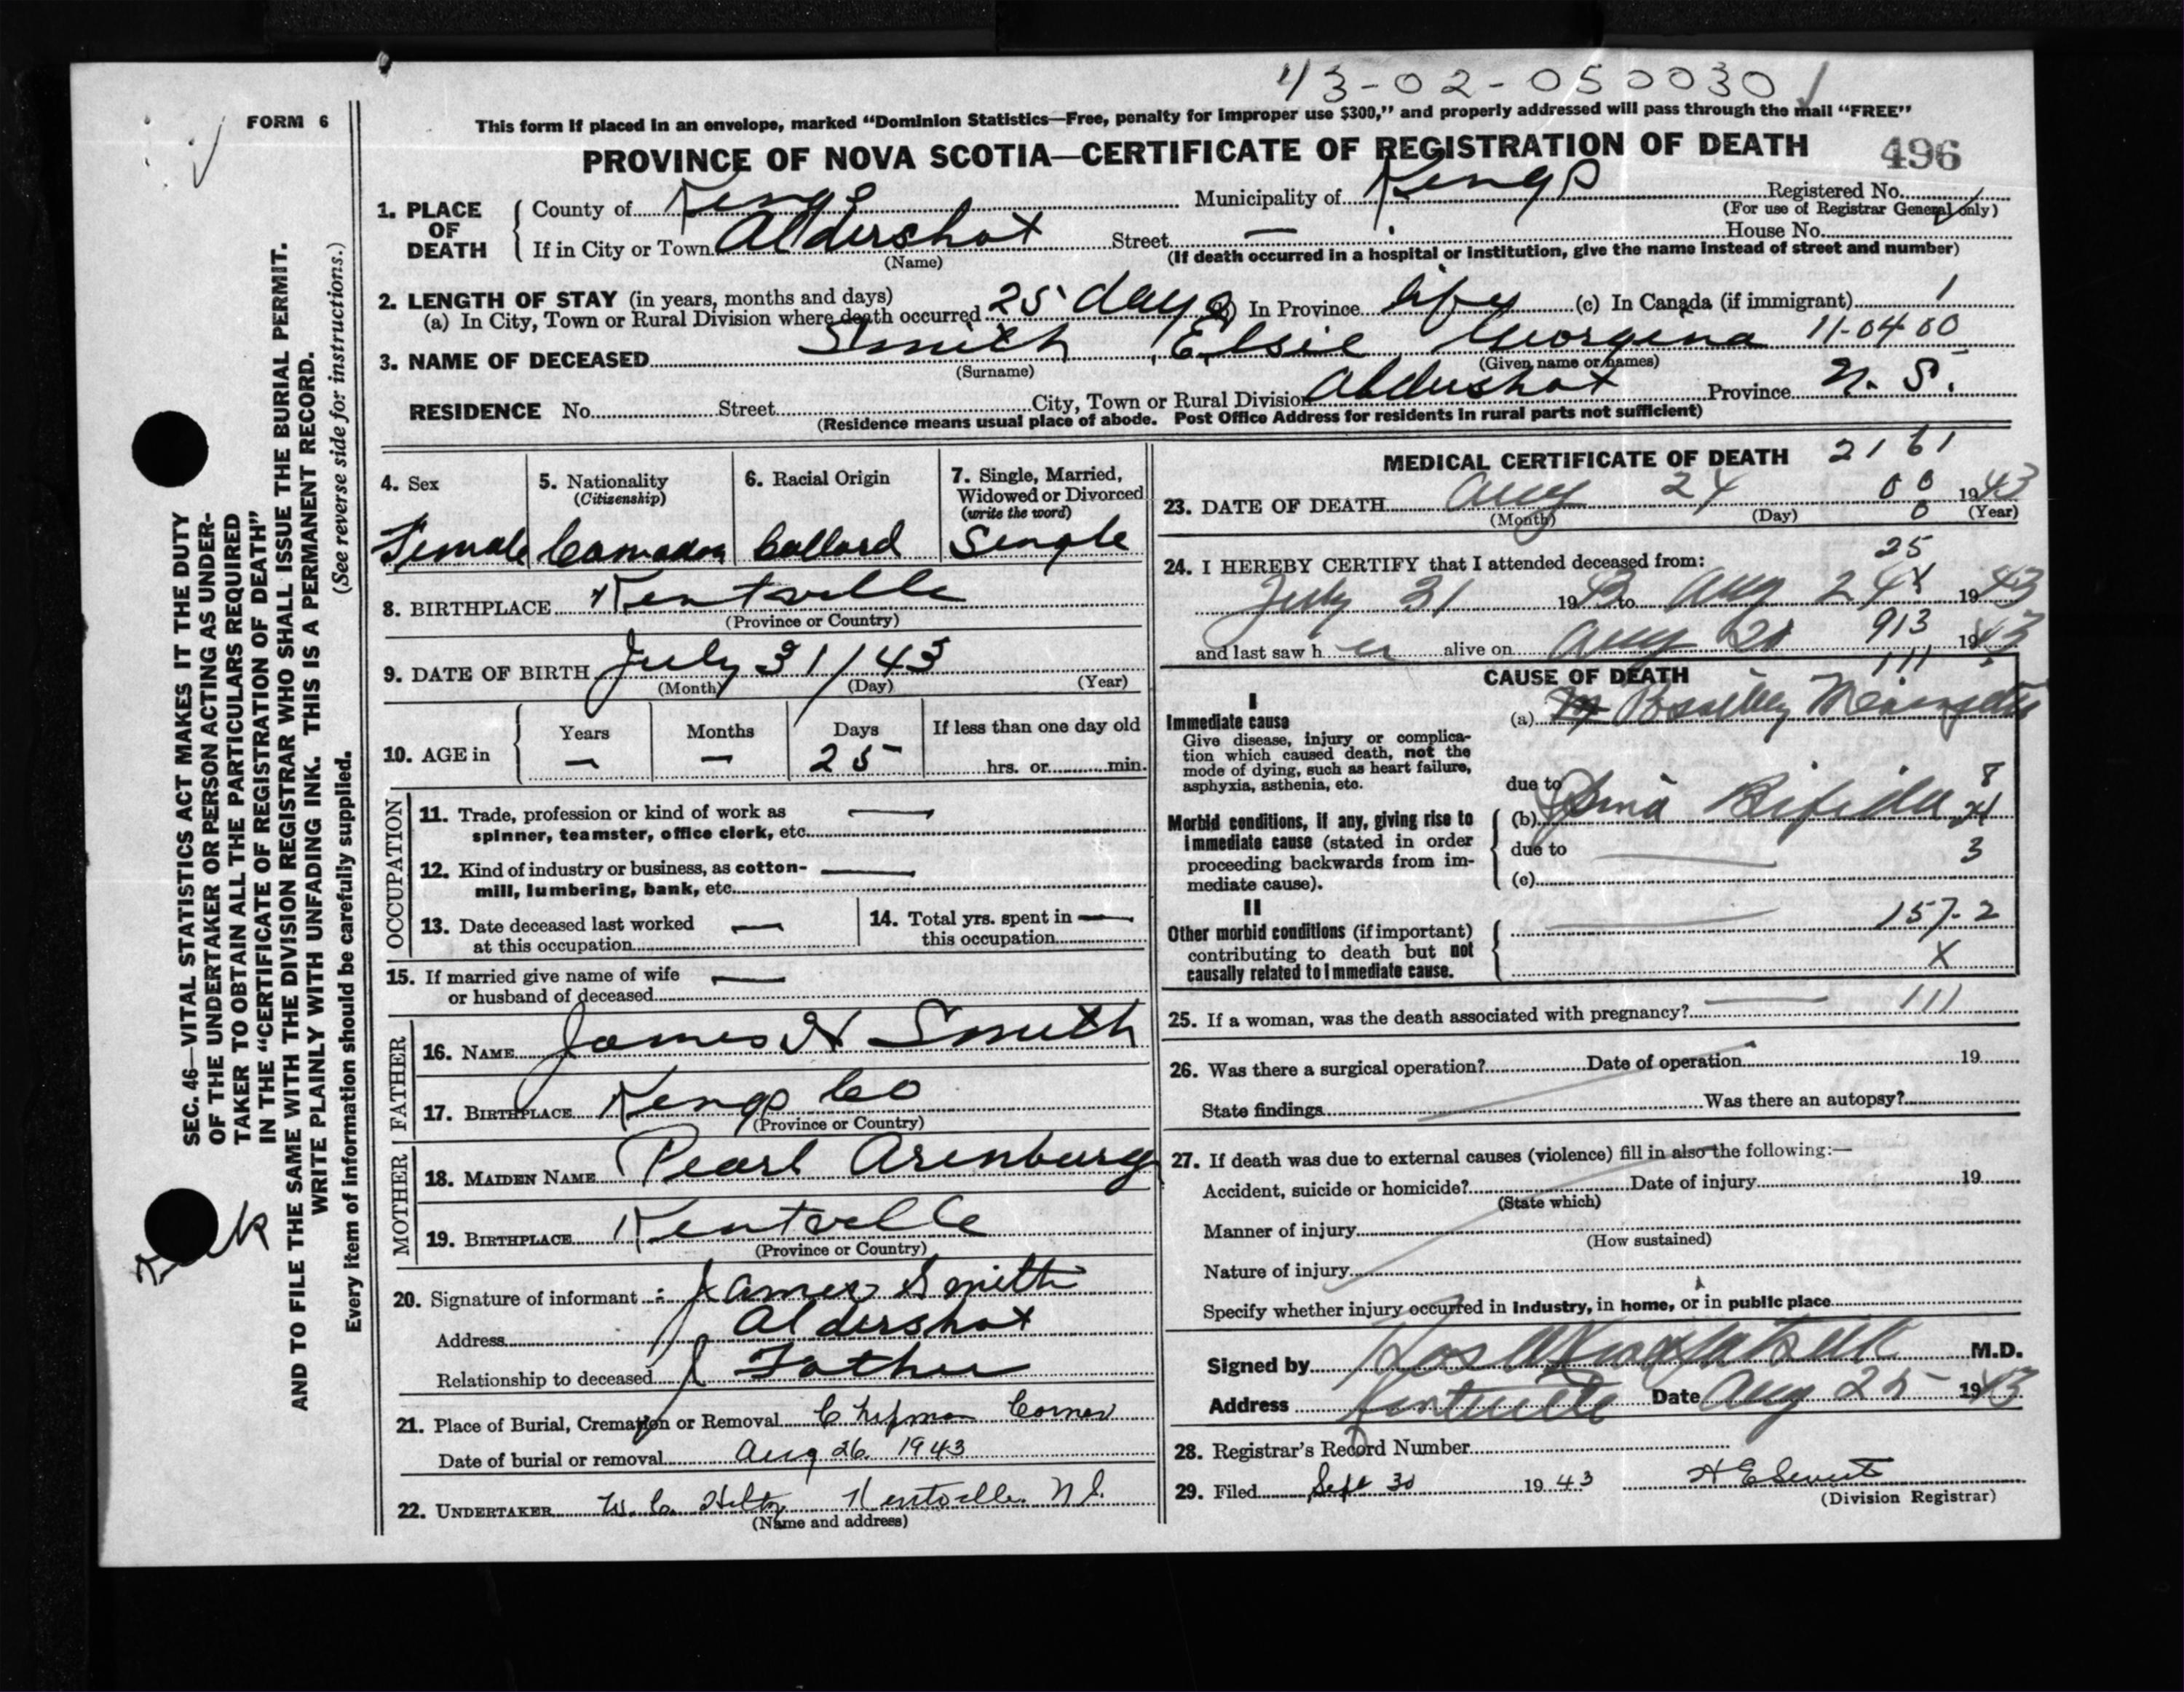 43-02-050030
FORM 6
This form if placed in an envelope, marked “Dominion Statistics—Free, penalty for improper use $300,” and properly addressed will pass through the mail “FREE”
PROVINCE OF NOVA SCOTIA—CERTIFICATE OF REGISTRATION OF DEATH 496
1. PLACE OF DEATH County of Kings Municipality of Kings Registered No.
(For use of Registrar General only)
If in City or Town Aldershot Street — House No.
(Name) (If death occurred in a hospital or institution, give the name instead of street and number)
2. LENGTH OF STAY (in years, months and days)
(a) In City, Town or Rural Division where death occurred 25 days (b) In Province life (c) In Canada (if immigrant) 1
3. NAME OF DECEASED Smith, Elsie Georgena 11-04-00
(Surname) (Given name or names)
RESIDENCE No. Street City, Town or Rural Division Aldershot Province N. S.
(Residence means usual place of abode. Post Office Address for residents in rural parts not sufficient)
4. Sex 5. Nationality (Citizenship) 6. Racial Origin 7. Single, Married, Widowed or Divorced (write the word)
Female Canadan Collard Single
8. BIRTHPLACE Kentville
(Province or Country)
9. DATE OF BIRTH July 31/43
(Month) (Day) (Year)
10. AGE in Years Months Days If less than one day old
— — 25 hrs. or min.
OCCUPATION
11. Trade, profession or kind of work as spinner, teamster, office clerk, etc. —
12. Kind of industry or business, as cotton-mill, lumbering, bank, etc. —
13. Date deceased last worked at this occupation — 14. Total yrs. spent in this occupation —
15. If married give name of wife or husband of deceased —
FATHER
16. NAME James H Smith
17. BIRTHPLACE Kings Co
(Province or Country)
MOTHER
18. MAIDEN NAME Pearl Arenburg
19. BIRTHPLACE Kentville
(Province or Country)
20. Signature of informant: James Smith
Address Aldershot
Relationship to deceased Father
21. Place of Burial, Cremation or Removal Chipman Corner
Date of burial or removal Aug 26 1943
22. UNDERTAKER W. C. Hiltz Kentville N.S.
(Name and address)
MEDICAL CERTIFICATE OF DEATH 2161
23. DATE OF DEATH Aug 24 00 1943
(Month) (Day) 0 (Year)
24. I HEREBY CERTIFY that I attended deceased from: 25
July 31 1943 to Aug 24 1943
and last saw her alive on Aug 21 913 1943
CAUSE OF DEATH 111
I
Immediate cause
Give disease, injury or complication which caused death, not the mode of dying, such as heart failure, asphyxia, asthenia, etc.
(a) Meningitis
due to 8
Morbid conditions, if any, giving rise to immediate cause (stated in order proceeding backwards from immediate cause).
(b) Spina Bifida
due to — 3
(c)
II
Other morbid conditions (if important) contributing to death but not causally related to immediate cause.
— 157-2
X
25. If a woman, was the death associated with pregnancy? — 111
26. Was there a surgical operation? Date of operation 19
State findings Was there an autopsy?
27. If death was due to external causes (violence) fill in also the following:—
Accident, suicide or homicide? Date of injury 19
(State which)
Manner of injury
(How sustained)
Nature of injury
Specify whether injury occurred in industry, in home, or in public place
Signed by M.D.
Address Kentville Date Aug 25 1943
28. Registrar's Record Number
29. Filed Sept 30 1943
(Division Registrar)
SEC. 46—VITAL STATISTICS ACT MAKES IT THE DUTY
OF THE UNDERTAKER OR PERSON ACTING AS UNDER-
TAKER TO OBTAIN ALL THE PARTICULARS REQUIRED
IN THE “CERTIFICATE OF REGISTRATION OF DEATH”
AND TO FILE THE SAME WITH THE DIVISION REGISTRAR WHO SHALL ISSUE THE BURIAL PERMIT.
WRITE PLAINLY WITH UNFADING INK. THIS IS A PERMANENT RECORD.
Every item of information should be carefully supplied. (See reverse side for instructions.)